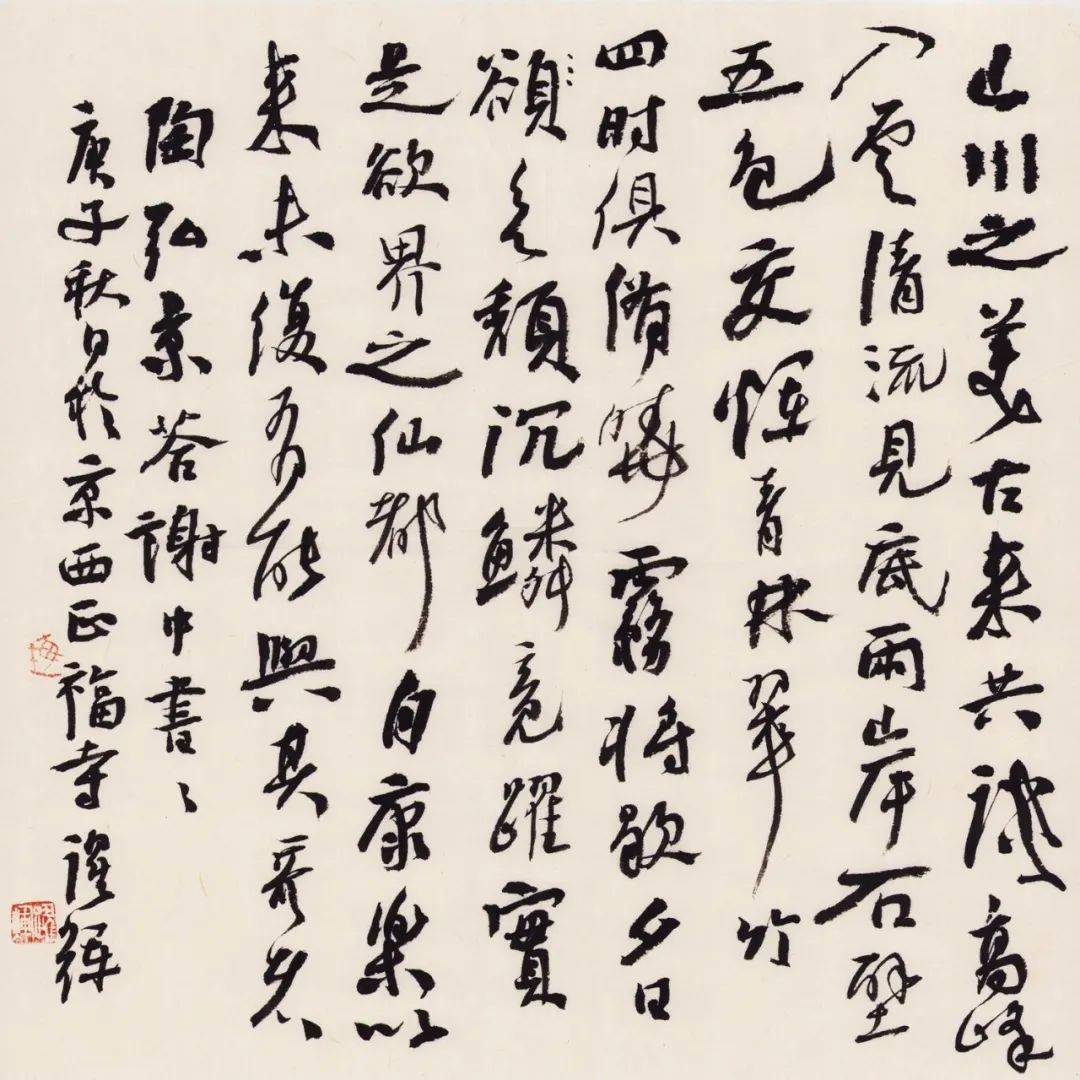 山川之美古来共談高峰
入雲清流見底兩岸石壁
五色交輝青林翠竹
四时俱備曉霧將歇夕日
欲頹沉鱗競躍實
是欲界之仙都自康樂以
来未復有能與其奇者
陶弘景答謝中書〻
庚子秋日於京西正福寺